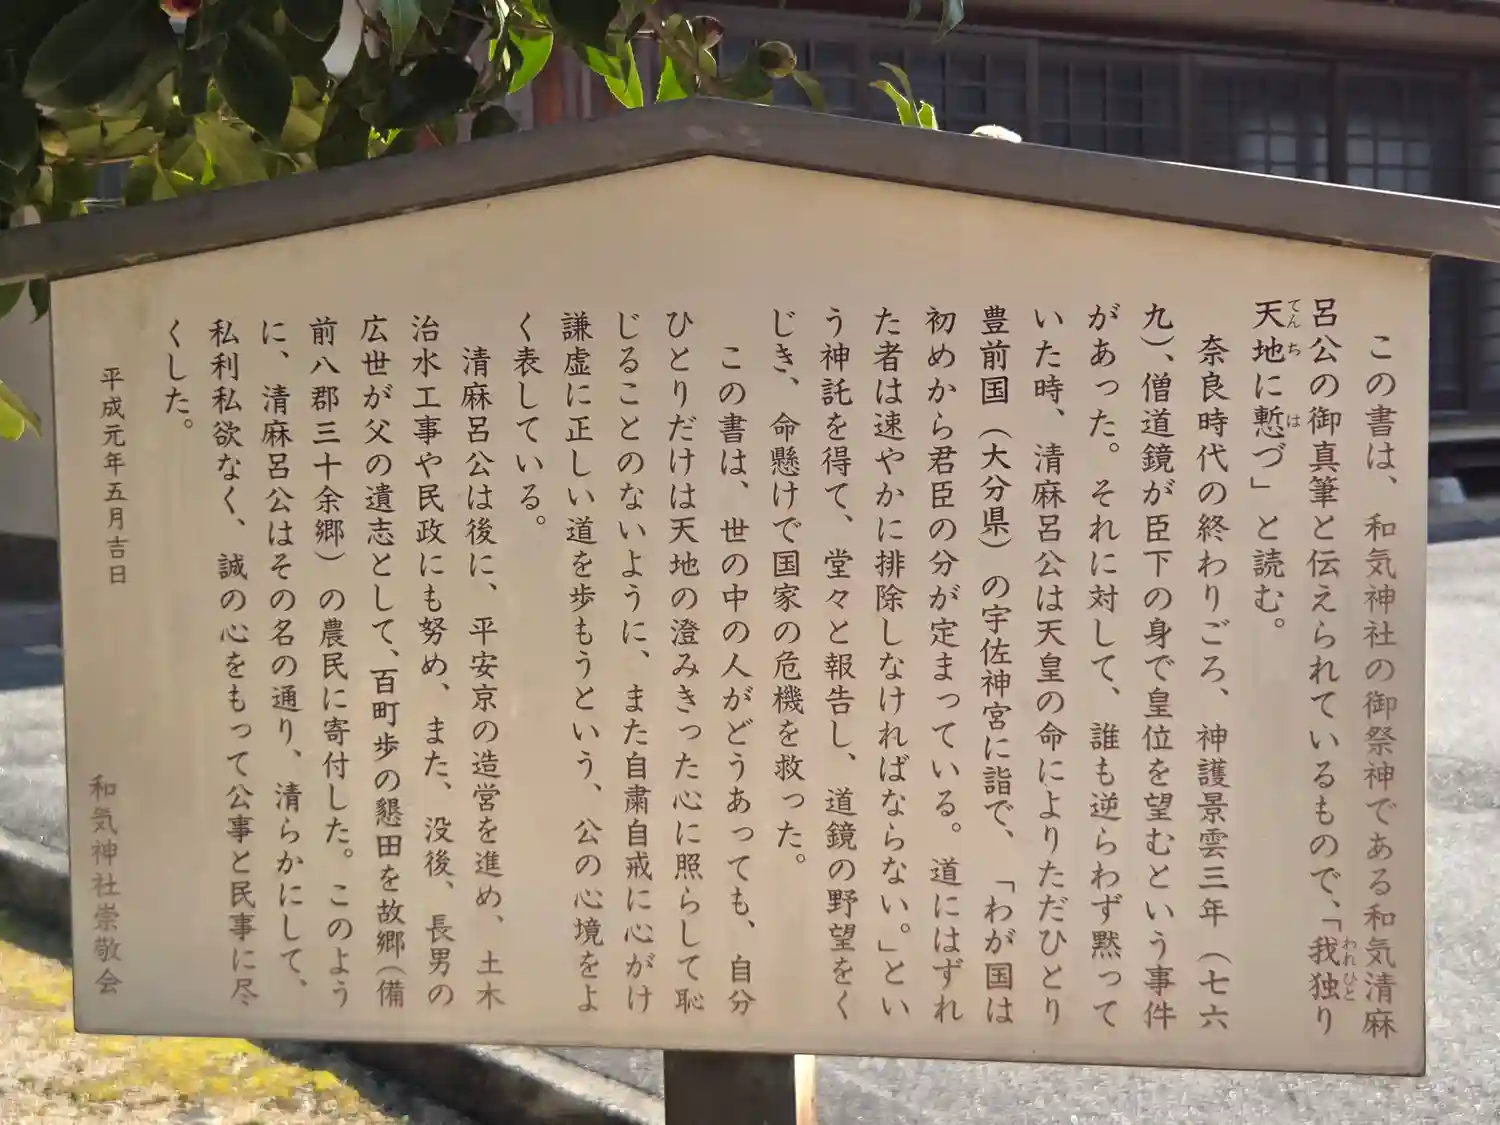 この書は、和気神社の御祭神である和気清麻
呂公の御真筆と伝えられているもので、「我独り
天地に慙づ」と読む。
奈良時代の終わりごろ、神護景雲三年（七六
九）、僧道鏡が臣下の身で皇位を望むという事件
があった。それに対して、誰も逆らわず黙って
いた時、清麻呂公は天皇の命によりただひとり
豊前国（大分県）の宇佐神宮に詣で、「わが国は
初めから君臣の分が定まっている。道にはずれ
た者は速やかに排除しなければならない。」とい
う神託を得て、堂々と報告し、道鏡の野望をく
じき、命懸けで国家の危機を救った。
この書は、世の中の人がどうあっても、自分
ひとりだけは天地の澄みきった心に照らして恥
じることのないように、また自粛自戒に心がけ
謙虚に正しい道を歩もうという、公の心境をよ
く表している。
清麻呂公は後に、平安京の造営を進め、土木
治水工事や民政にも努め、また、没後、長男の
広世が父の遺志として、百町歩の懇田を故郷（備
前八郡三十余郷）の農民に寄付した。このよう
に、清麻呂公はその名の通り、清らかにして、
私利私欲なく、誠の心をもって公事と民事に尽
くした。
平成元年五月吉日
和気神社崇敬会
われひと
てんち
は